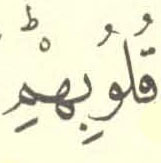 قُلُوبِهِمْؕ